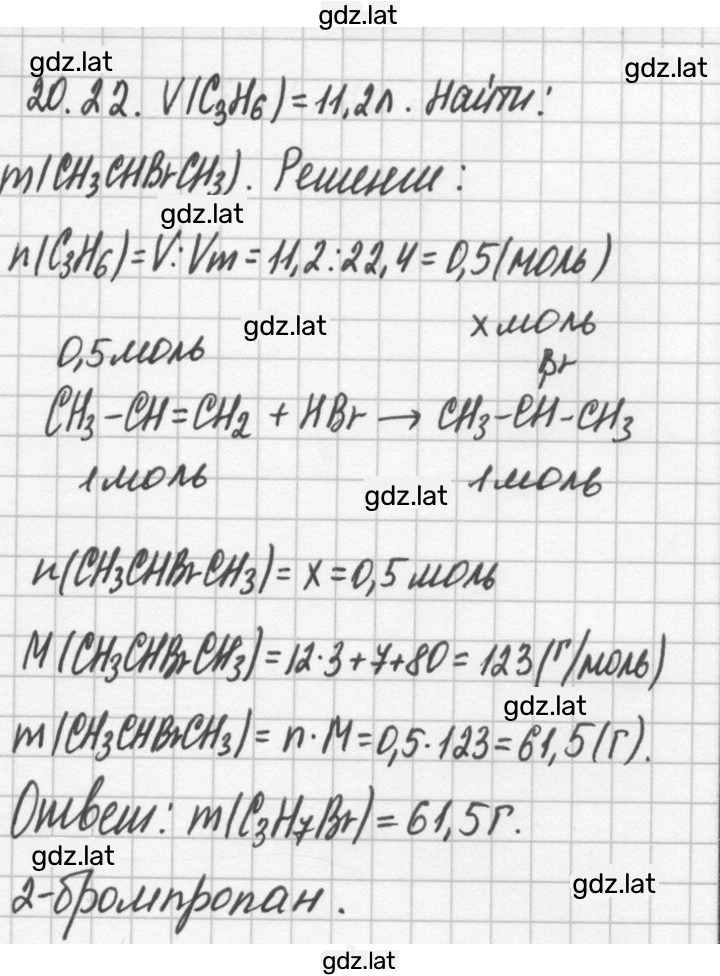 gdz.lat
gdz.lat
gdz.lat
20.22. V(C₃H₆) = 11,2л. Найти:
m(CH₃CHBrCH₃). Решение:
gdz.lat
n(C₃H₆) = V:Vm = 11,2:22,4 = 0,5(моль)
gdz.lat
x моль
0,5 моль
Br
CH₃-CH=CH₂ + HBr → CH₃-CH-CH₃
1 моль 1 моль
gdz.lat
n(CH₃CHBrCH₃) = x = 0,5 моль
M(CH₃CHBrCH₃) = 12·3+7+80 = 123(г/моль)
gdz.lat
m(CH₃CHBrCH₃) = n·M = 0,5·123 = 61,5(г).
Ответ: m(C₃H₇Br) = 61,5г.
gdz.lat
gdz.lat
2-бромпропан.
gdz.lat